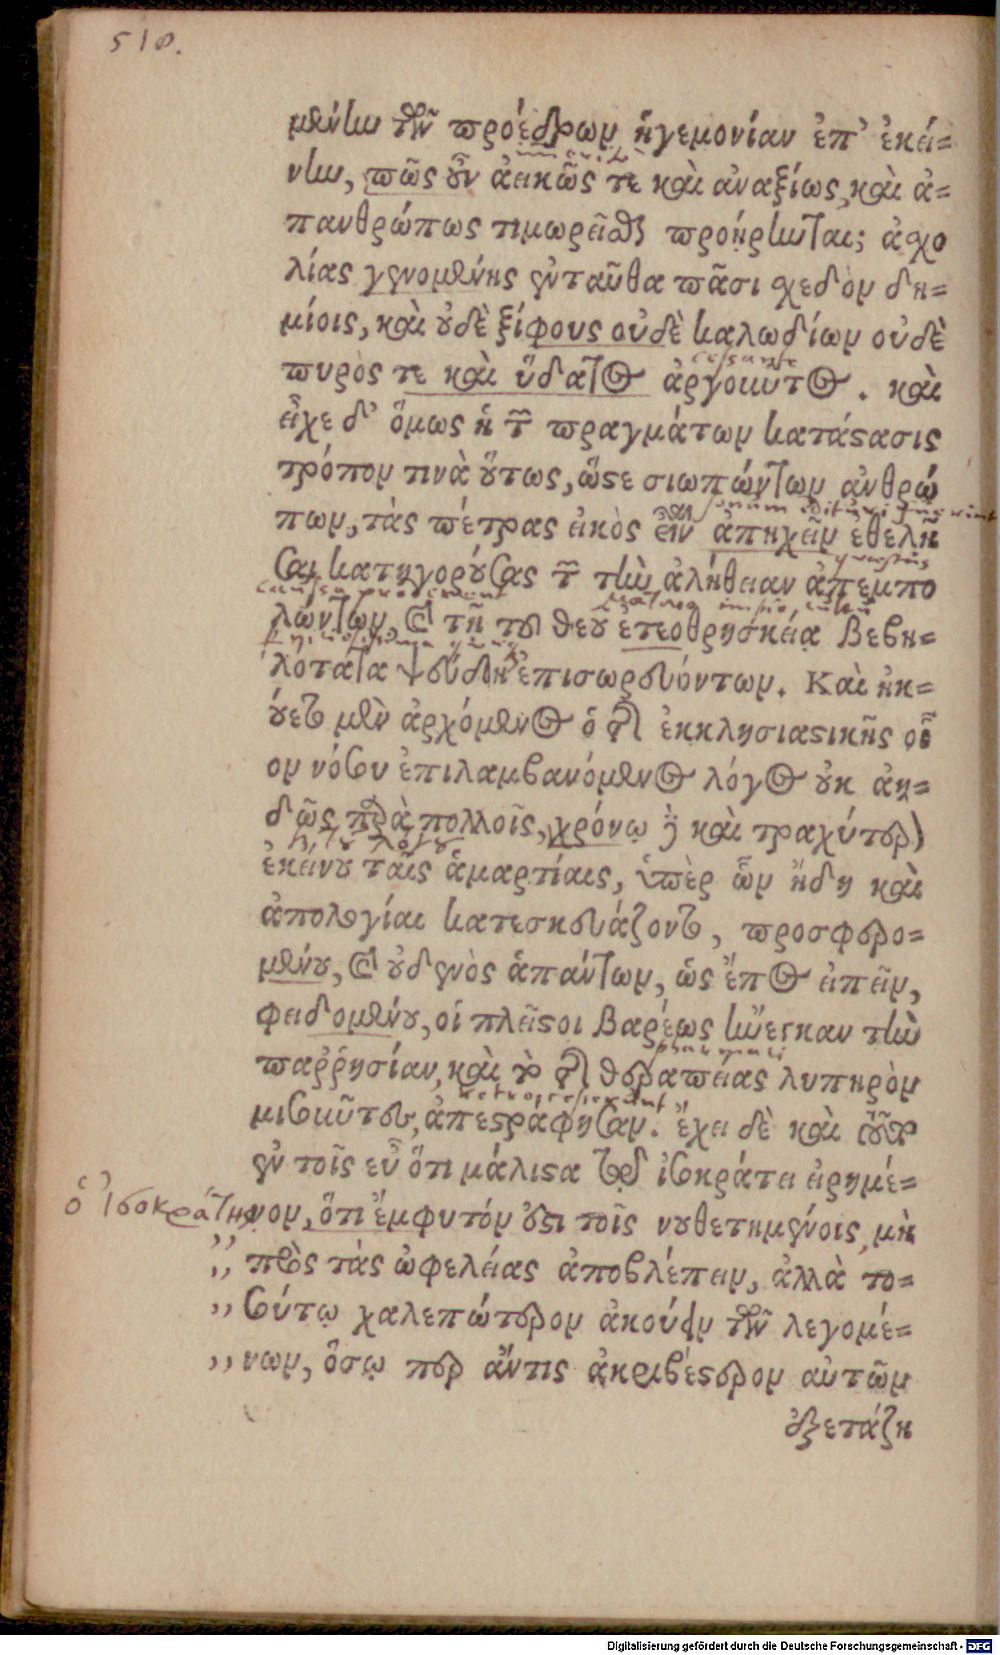 518.
μένην τῶν προέδρων ἡγεμονίαν ἐπ' ἐκεί=
νην, πῶς οὖν ἀεικῶς τε καὶ ἀναξίως, καὶ ἀ=
πανθρώπως τιμωρεῖσθαι προῄρηνται; ἀσχο
λίας γενομένης ἐνταῦθα πᾶσι σχεδὸν δη=
μίοις, καὶ οὐδὲ ξίφους οὐδὲ καλωδίων οὐδὲ
cessante
πυρὸς τε καὶ ὕδατος ἀργοῦντος. καὶ
εἶχε δ' ὅμως ἡ τῶν πραγμάτων κατάστασις
τρόπον τινὰ οὕτως, ὥστε σιωπώντων ἀνθρώ
πων, τὰς πέτρας εἰκὸς εἶναι ἀπηχεῖν ἐθελῆ
σαι κατηγορούσας τῶν τὴν ἀλήθειαν ἀπεμπο
λώντων, καὶ τῇ τοῦ θεοῦ ἑτεοθρησκείᾳ βεβη=
λότατα ψεύδη ἐπισωρευόντων. Καὶ ἠκ=
ούετο μὲν ἀρχόμενος ὁ τῆς ἐκκλησιαστικῆς οἷ
ον νόσου ἐπιλαμβανόμενος λόγος οὐκ ἀη=
δῶς παρὰ πολλοῖς, χρόνῳ δὲ καὶ τραχύτερον
τοῦ λόγου
ἐκείνου ταῖς ἁμαρτίαις, ὑπὲρ ὧν ἤδη καὶ
ἀπολογίαι κατεσκευάζοντο, προσφερο=
μένου, καὶ οὐδενὸς ἁπάντων, ὡς ἔπος εἰπεῖν,
φειδομένου, οἱ πλεῖστοι βαρέως ἤνεγκαν τὴν
παῤῥησίαν, καὶ τὸ τῆς θεραπείας λυπηρὸν
retrocesserunt
μισοῦντες, ἀπεστράφησαν. ἔχει δὲ καὶ τοῦτο
ἐν τοῖς εὖ ὅτι μάλιστα τῷ ἰσοκράτει εἰρημέ=
ὁ Ἰσοκράτης
νον, ὅτι ἔμφυτόν ἐστι τοῖς νουθετημένοις, μὴ
,, πρὸς τὰς ὠφελείας ἀποβλέπειν, ἀλλὰ το=
,, σούτῳ χαλεπώτερον ἀκούειν τῶν λεγομέ=
,, νων, ὅσῳ περ ἄντις ἀκριβέστερον αὐτῶν
ἐξετάζῃ
Digitalisierung gefördert durch die Deutsche Forschungsgemeinschaft - DFG